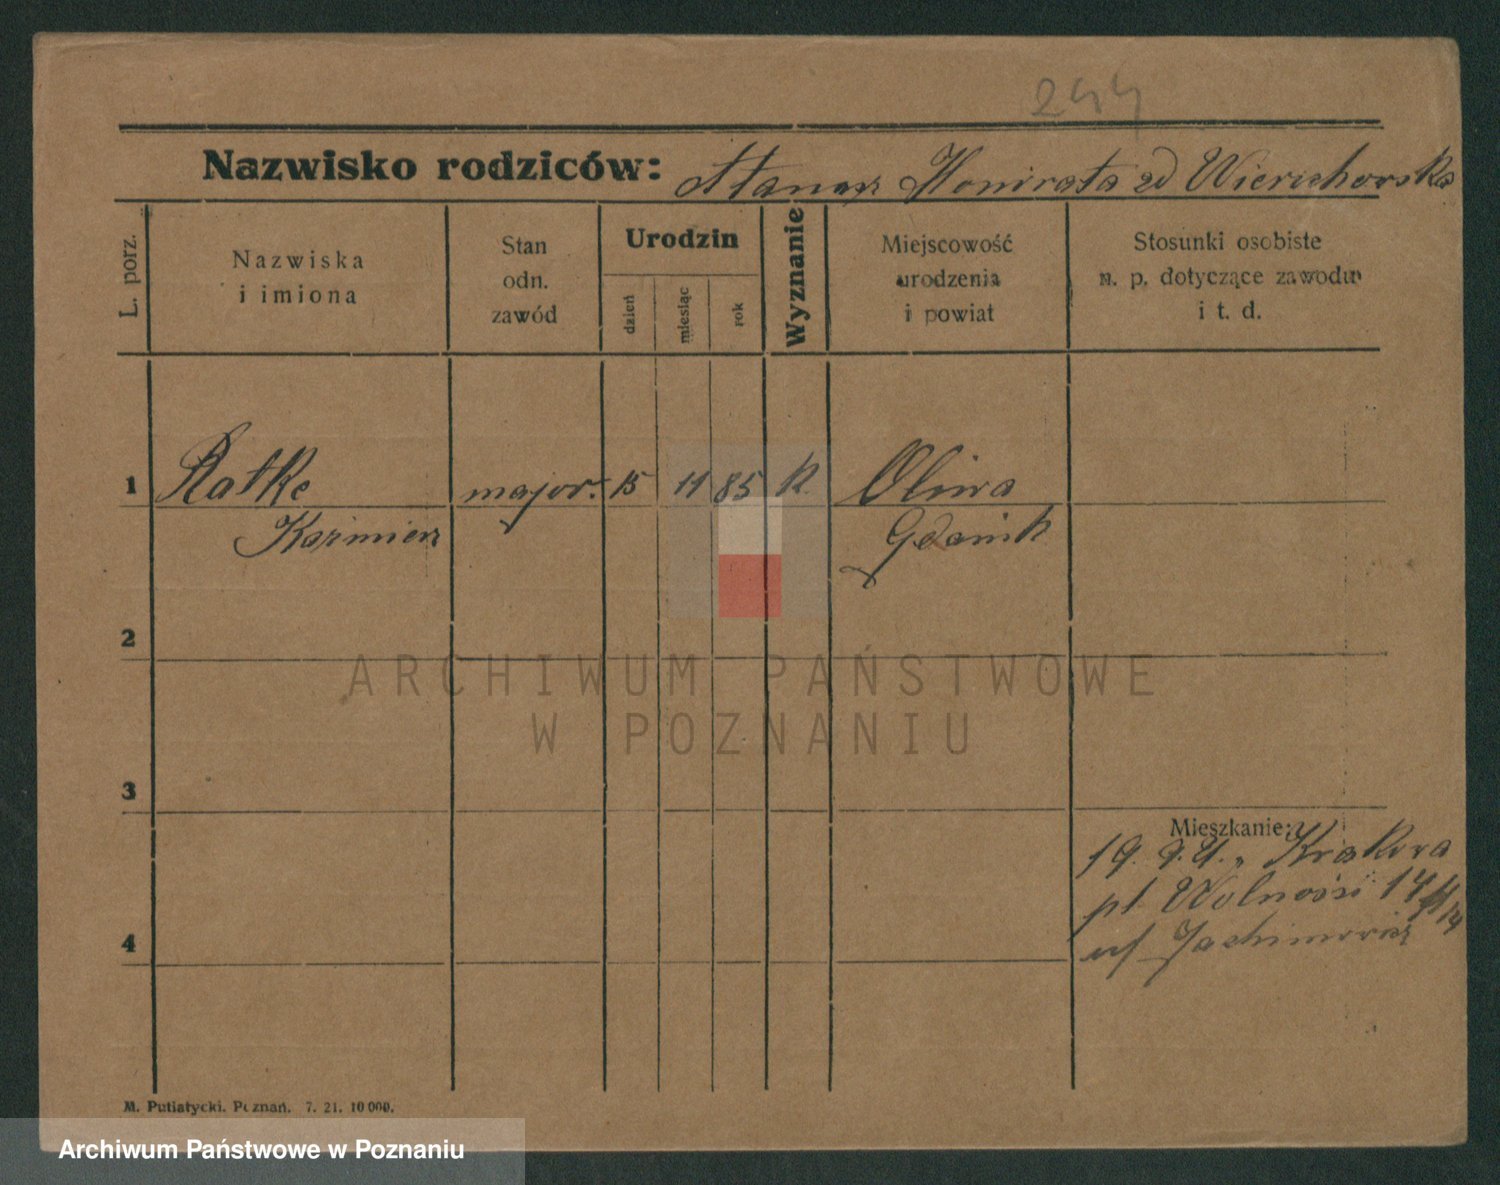 244
Nazwisko rodziców: Honorata zd Wierzchowska
L. porz.
Nazwiska i imiona
Stan odn. zawód
Urodzin
dzień
miesiąc
rok
Wyznanie
Miejscowość urodzenia i powiat
Stosunki osobiste n. p. dotyczące zawodu i t. d.
1 Ratke major. 15 11 85 k. Oliwa
Kazimierz Gdańsk
2
3
Mieszkanie:
19. Krakowa
pl. Wolności 14
4
u/ Jachimowicz
ARCHIWUM PAŃSTWOWE
W POZNANIU
M. Putiatycki. Poznań. 7. 21. 10 000.
Archiwum Państwowe w Poznaniu